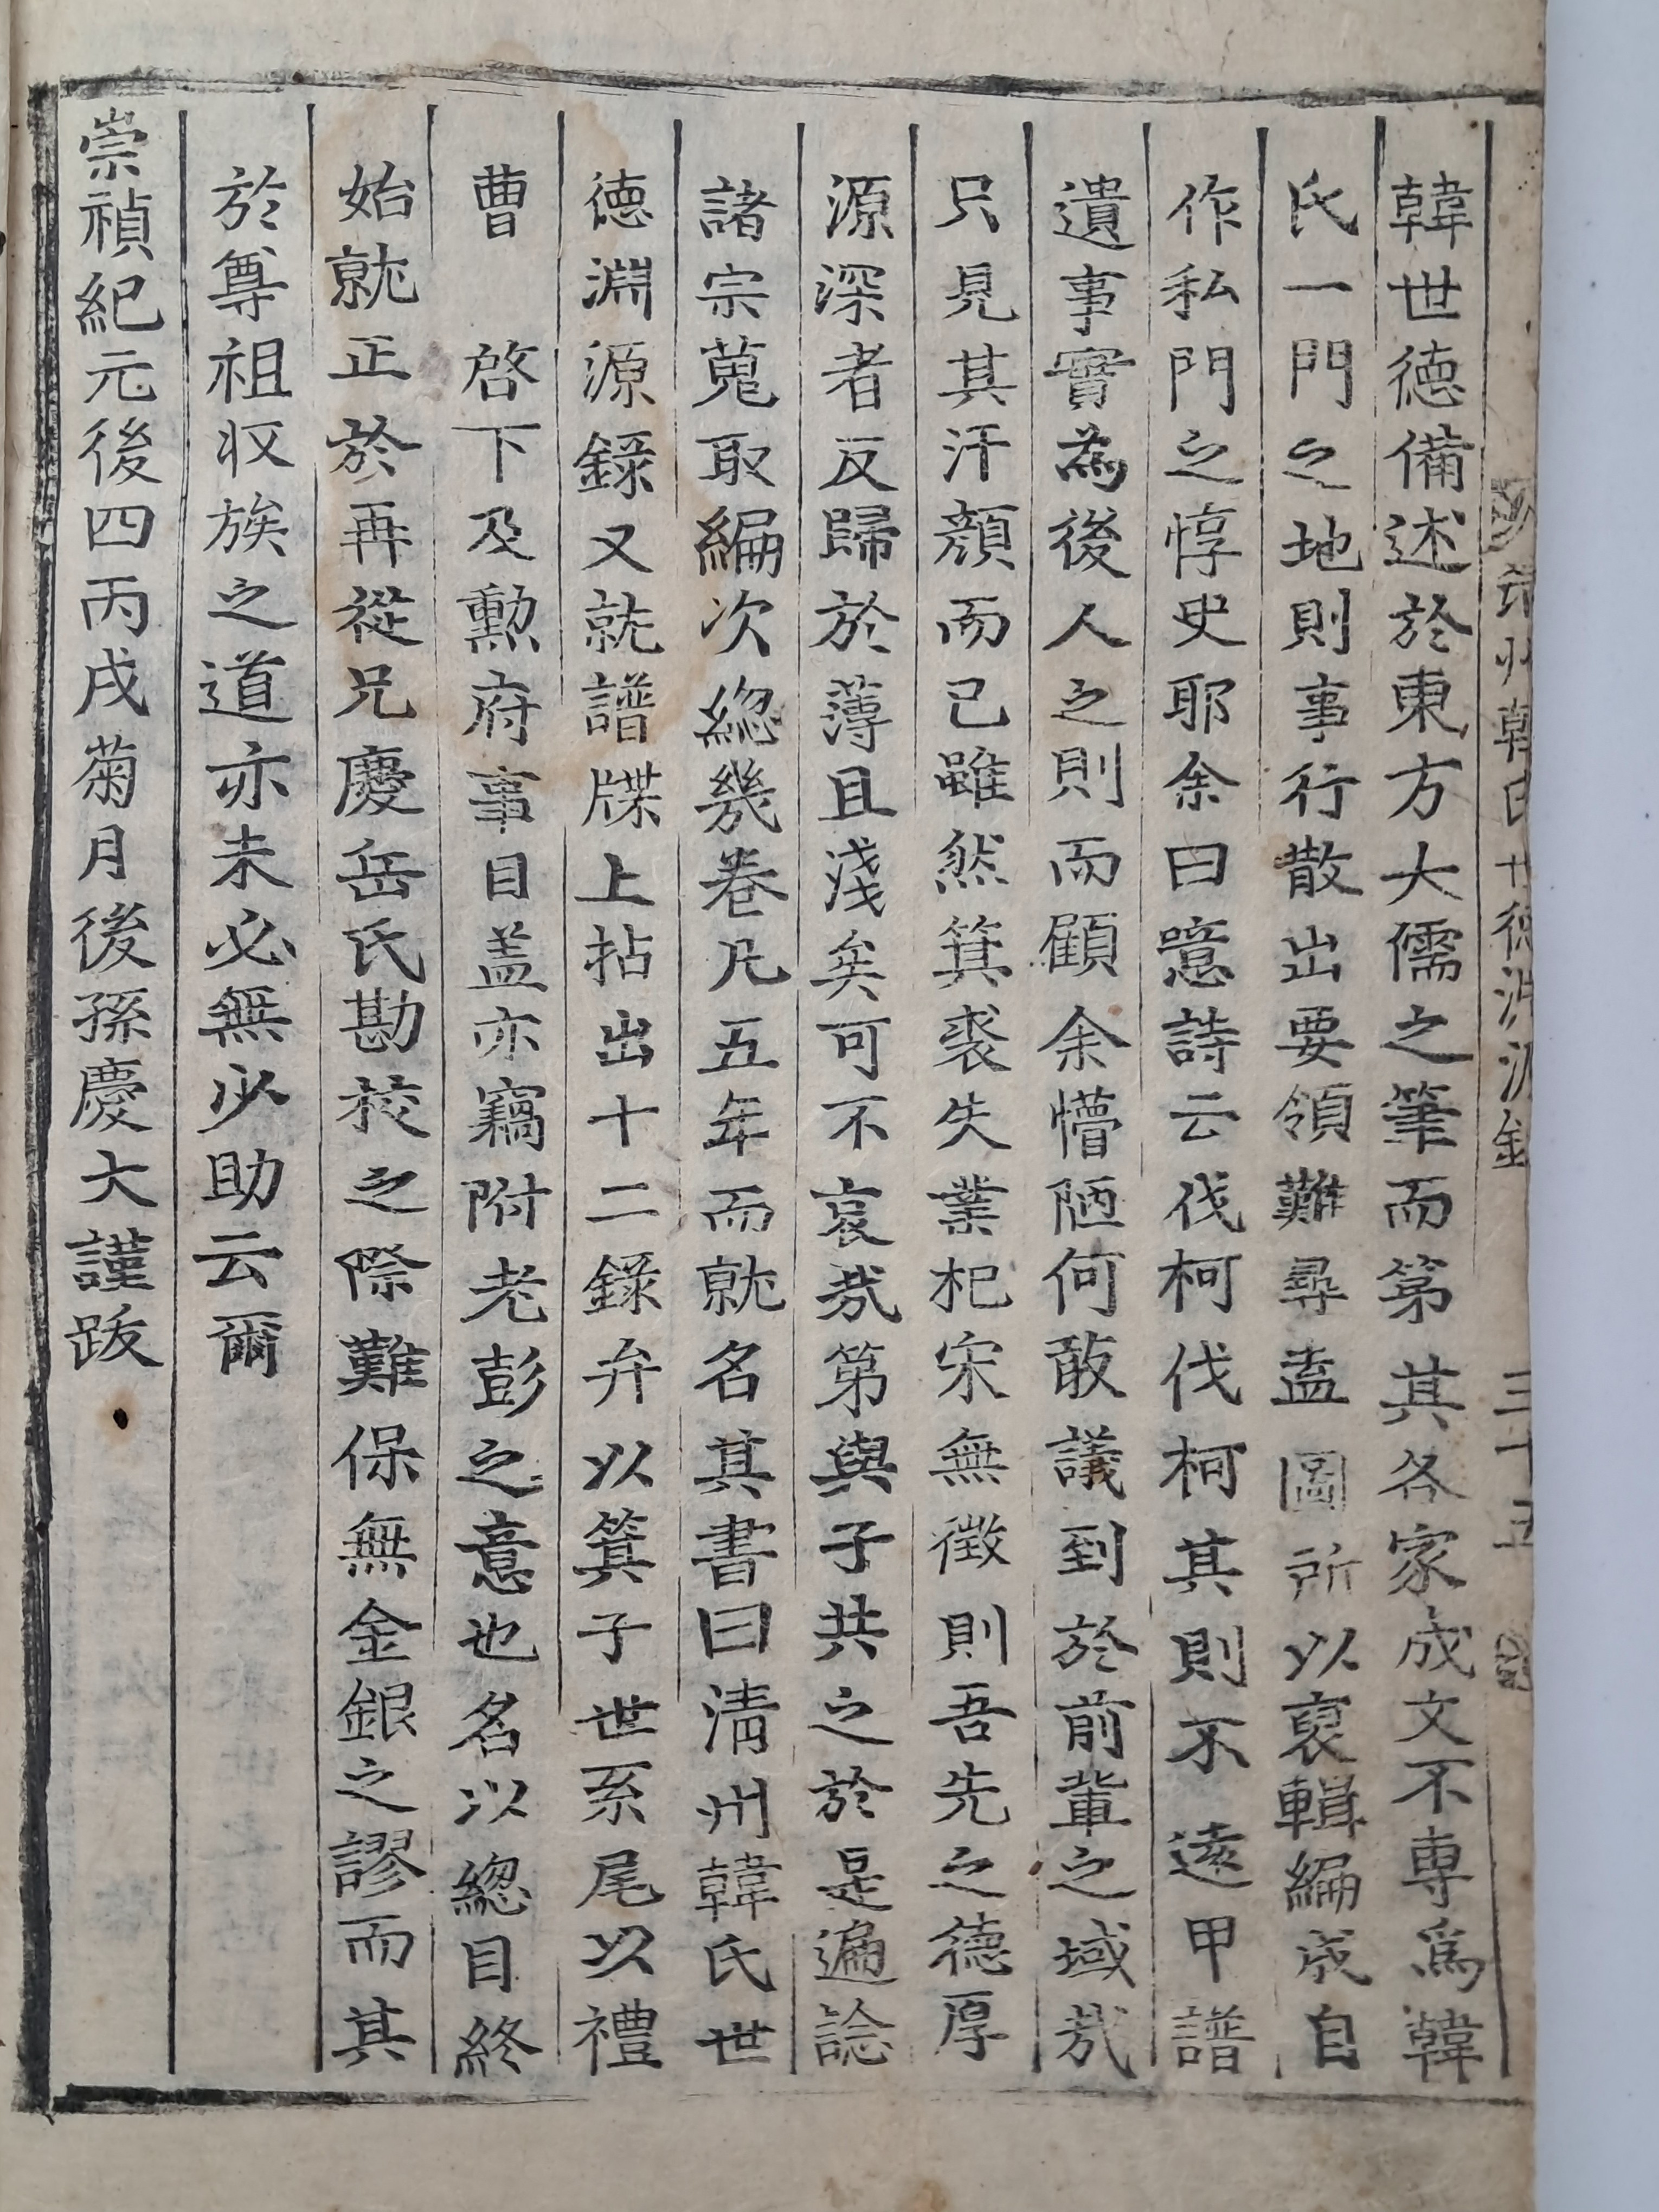 韓世德備述於東方大儒之筆而第其各家成文不專爲韓
氏一門之地則事行散出要領難尋盍圖所以裒輯編成自
作私門之惇史耶余曰噫詩云伐柯伐柯其則不遠甲譜
遺事實為後人之則而顧余懵陋何敢議到於前輩之域哉
只見其汗顔而已雖然箕裘失業杞宋無徵則吾先之德厚
源深者反歸於薄且淺矣可不哀哉第與子共之於是遍諗
諸宗蒐取編次緫幾卷凡五年而就名其書曰淸州韓氏世
德淵源錄又就譜牒上拈出十二錄弁以箕子世系尾以禮
曹 啓下及勳府事目盖亦竊附老彭之意也名以緫目終
始就正於再從兄慶岳氏勘校之際難保無金銀之謬而其
於尊祖収族之道亦未必無少助云爾
崇禎紀元後四丙戌菊月後孫慶大謹跋